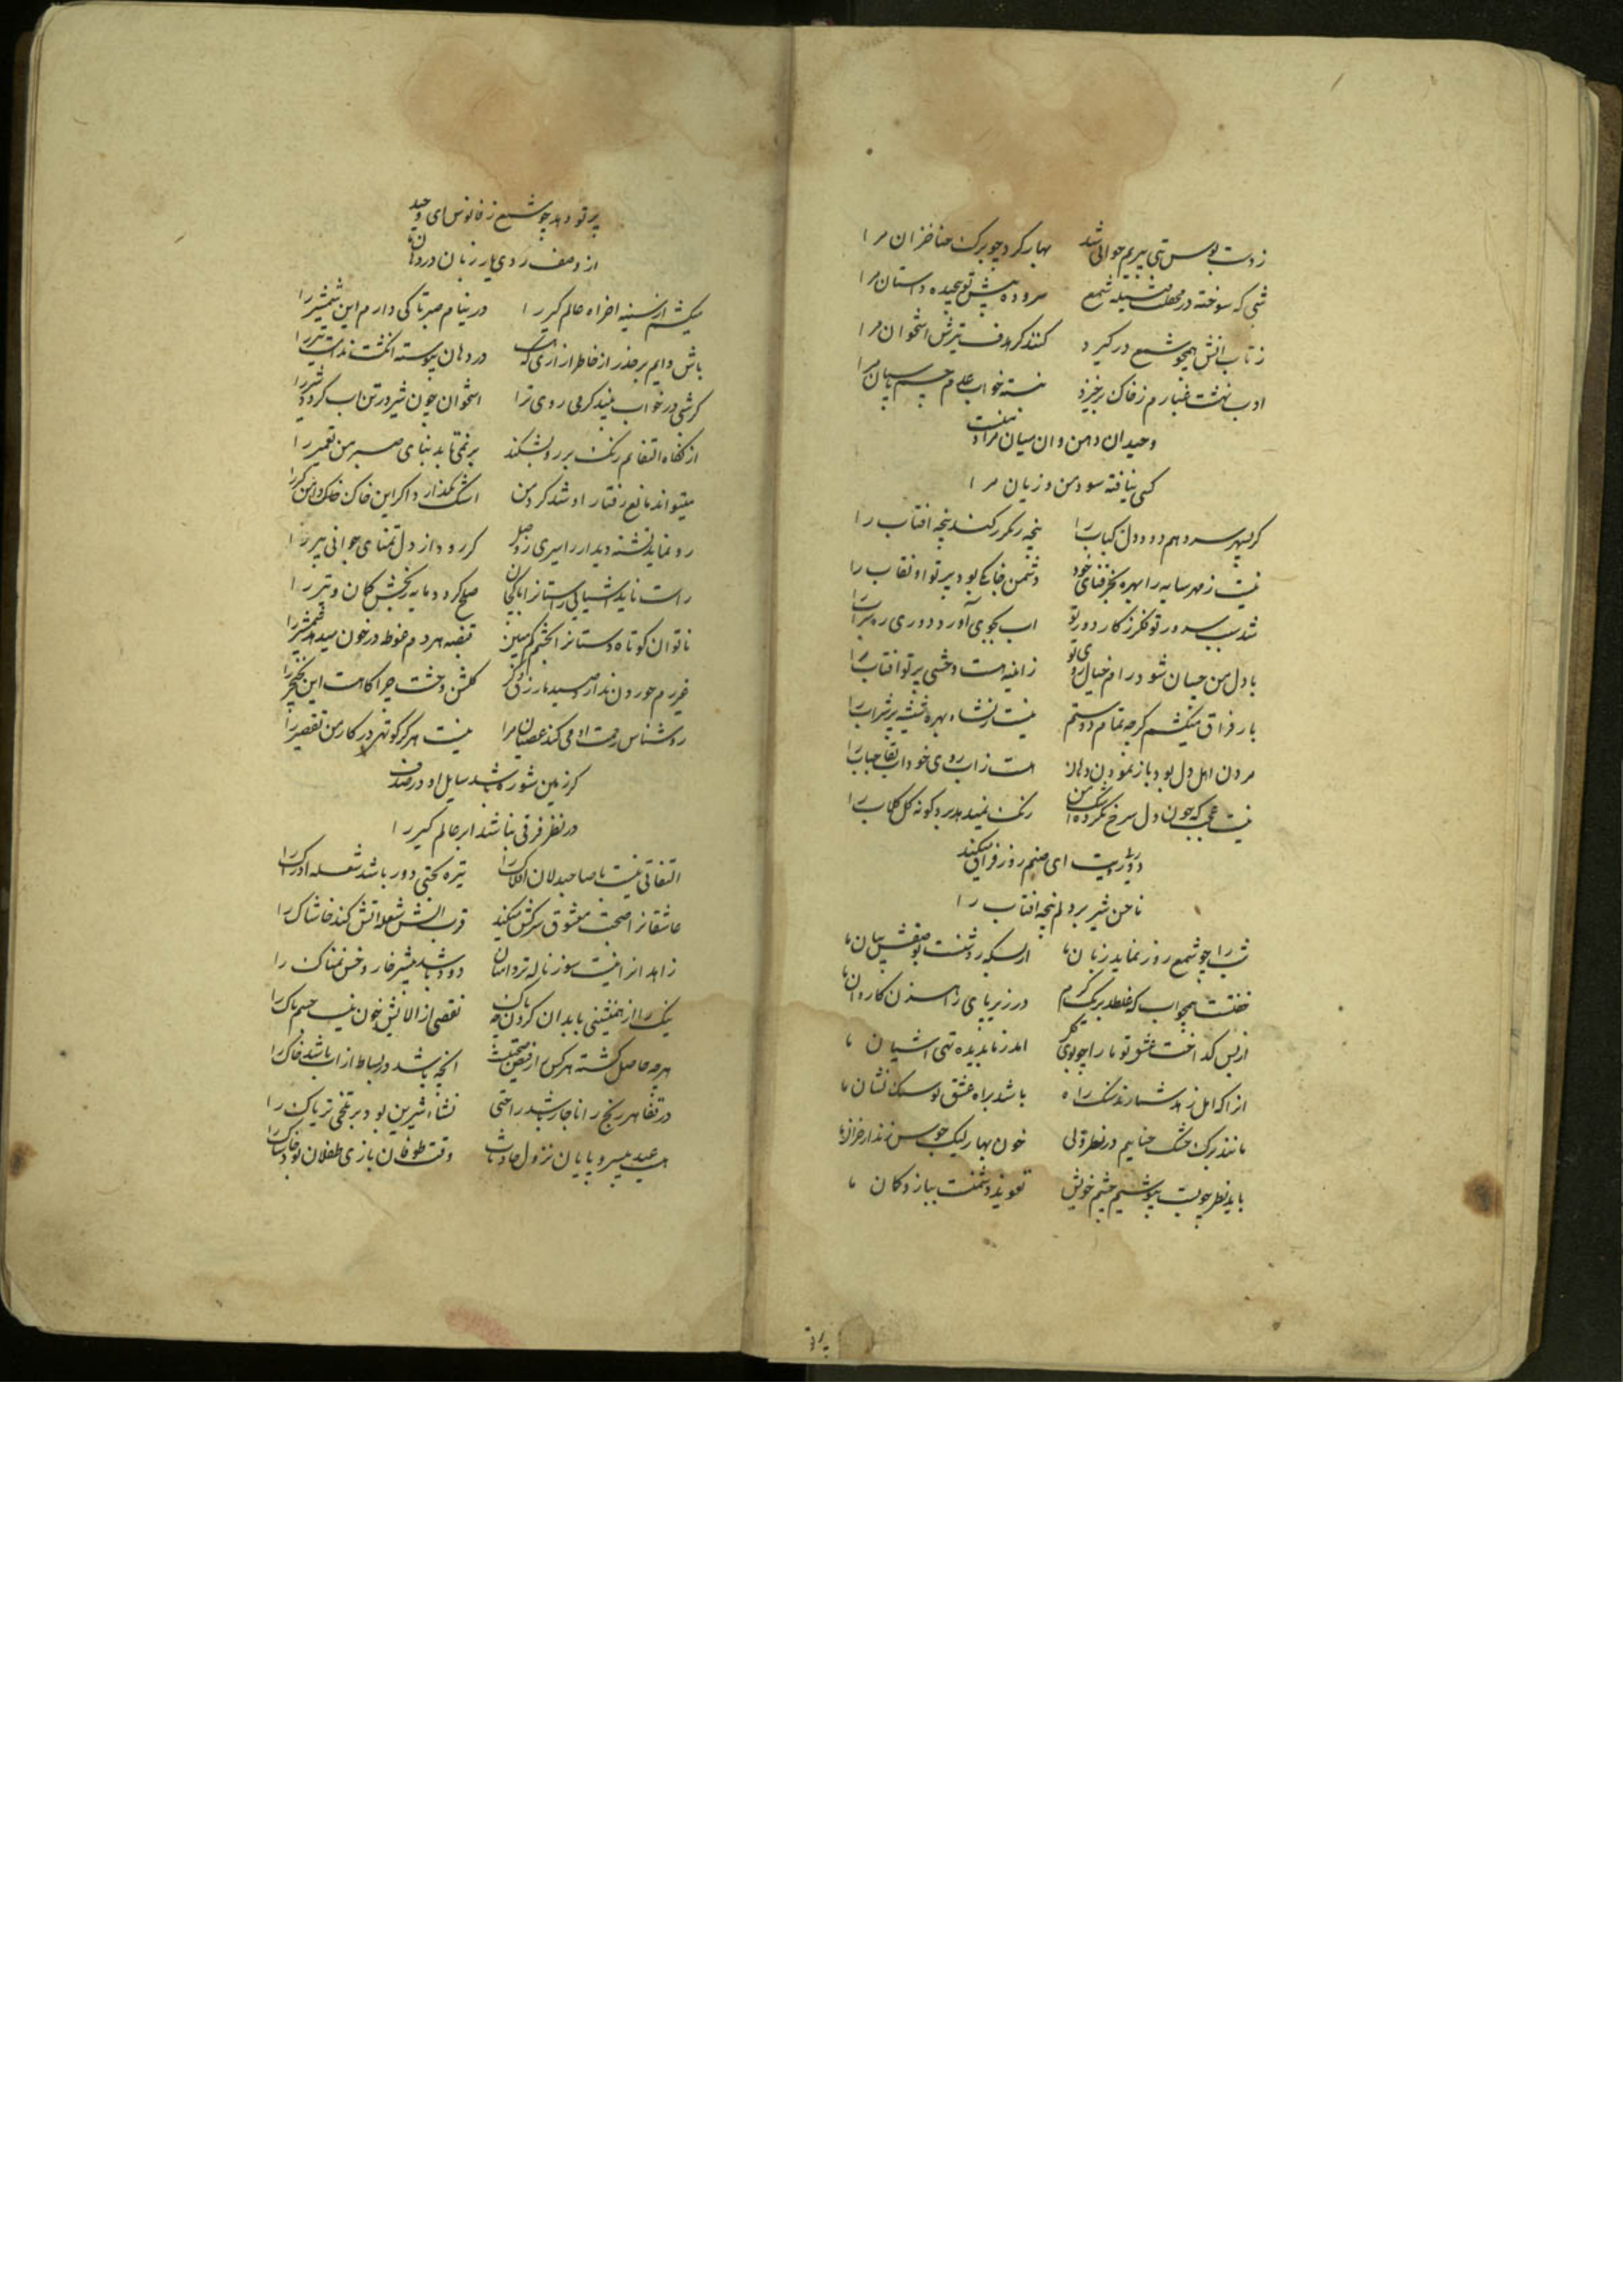 ز دست بوس بتی پیریم جوانی شد بهار کرد چو برک حنا خزان مرا
شبی که سوخته در محفلت فتیله شمع سروده پیش تو پیچیده داستان مرا
ز تاب اتش همچو شمع در کیرد کنند کر هدف تیرش استخوان مرا
ادب نهشت غبارم ز خاک برخیزد نبسته خواب عدم چشم پاسبان مرا
وحید ان دهن و ان میان مراد نیست
کسی نیافته سود من و زیان مرا
کر بسپهر سر دهم دود دل کباب را پنجه رنکرز کند پنجه افتاب را
نیست ز مهر سایه را بهره بجز فنای خود دشمن خانکی بود پرتو او نقاب را
شد سبب سرور تو فکر ز کار دور تو اب بجوی آورد دوری ره سراب را
با دل من چسان شود رام خیال روی تو ز اینه هست وحشی پرتو افتاب را
بار فراق میکشم کرچه تمام دوستم نیست ز نشاء بهره شیشه پر شراب را
مردن اهل دل بود باز نمودن دهان هست ز اب روی خود اب بقا حباب را
نیست عجب که چون دل سرخ نکرده اشک من رنک نمیدهد برو کونه کل کلاب را
دور ز رویت ای صنم روز فراق میکند
ناخن شیر بر دلم پنجه افتاب را
شب را چو شمع روز نماید زبان ما از بسکه روشنست بوصفش بیان ما
خفتست همچو اب که غلطد بریک کرم در زیر پای راهزن کاروان ما
از بس کداخت عشق تو ما را چو بوی کل امد ز ما بدیده تهی اشیان ما
از انکه اهل زهد شمارند سنک راه باشد براه عشق تو سنک نشان ما
مانند برک خشک حناییم در نظر ولی خون بهار لیک بجوش زند از خزان ما
باید نظر چو بست بپوشیم چشم خویش تعویذ دشمنست ببازو کمان ما
پرتو
پرتو دهد چو شمع ز فانوس ای وحید
از وصف روی یار زبان در دهان ما
میکشم از سینه اخر اه عالم کیر را در نیام صبر تا کی دارم این شمشیر را
باش دایم بر حذر از خاطر ازاری که هست در دهان پیوسته انکشت ندامت تیر را
کر شبی در خواب بیند کرمی روی ترا استخوان چون شیر در تن اب کردد شیر را
از نکاه التفاتم رنک بر رو بشکند بر نمی تابد بنای صبر من تعمیر را
میتواند مانع رفتار او شد کرد من اشک نکذارد اکر این خاک دامن کیر را
رو نماید تشنه دیدار را سیری ز وصل کر رود از دل تمنای جوانی پیر را
راست ناید اشیانی راستان را با کجان صلح کردد مایه رنجش کمان و تیر را
ناتوان کوتاه دستانرا بچشم کم مبین قبضه هر دم غوطه در خون میدهد شمشیر را
غیر رم خوردن ندارد صید ما رزق دکر کلشن وحشت چراکاهست این نخچیر را
روشناس رحمت او می کند عصیان مرا نیست هرکز کوتهی در کار من تقصیر را
کر زمین شور باشد سایل او در صدف
در نظر فرقی نباشد ابر عالم کیر را
التفاتی نیست با صاحبدلان افلاک را تیره بختی دور باشد شعله ادراک را
عاشقانرا صحبت معشوق سرکش میکند قرب اتش شعله اتش کند خاشاک را
زاهدانرا نیست سوز ناله تر دامنان دود باشد بیشتر خار و خس نمناک را
نیک را از همنشینی با بدان کردن چه باک نقصی از الایش خون نیست جسم پاک را
هرچه حاصل کشته هر کس را ز فیض صحبتست انچه باشد در بساط از اب باشد خاک را
در قفا هر رنج را ناچار باشد راحتی نشاء شیرین بود بر تلخی تریاک را
هست عید بیسر و پایان نزول حادثات وقت طوفان بازی طفلان بود خاشاک را